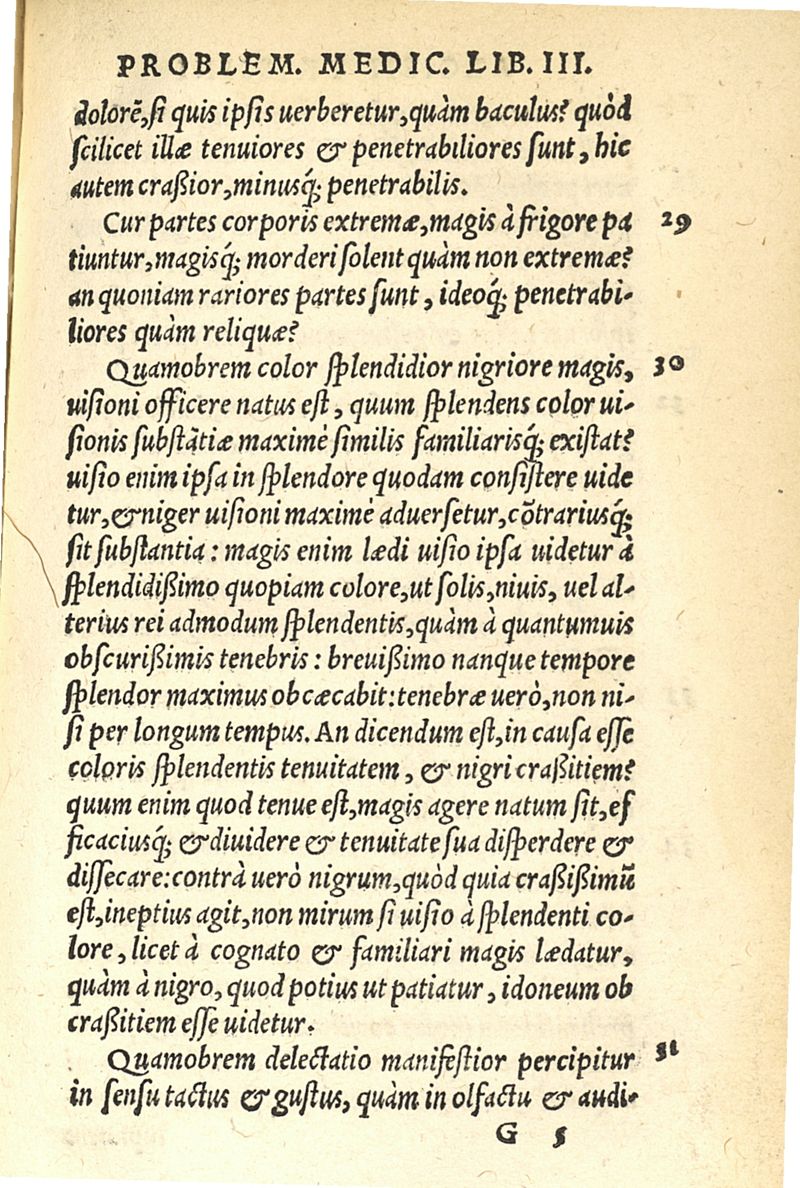 PROBLEM. MEDIC. LIB. III.
dolorē,ſi quis ipſis uerberetur,quàm baculus? quòd
ſcilicet illæ tenuiores & penetrabiliores ſunt, hic
autem craßior,minusq́; penetrabilis.
Cur partes corporis extremæ,magis à frigore pa 29
tiuntur,magisq́; morderi ſolent quàm non extremæ?
an quoniam rariores partes ſunt, ideoq́; penetrabi-
liores quàm reliquæ?
Quamobrem color ſplendidior nigriore magis, 30
uiſioni officere natus eſt, quum ſplendens color ui-
ſionis ſubſtātiæ maximè ſimilis familiarisq́; exiſtat?
uiſio enim ipſa in ſplendore quodam conſiſtere uide
tur,& niger uiſioni maximè aduerſetur,cōtrariusq́;
ſit ſubſtantia: magis enim lædi uiſio ipſa uidetur à
ſplendidißimo quopiam colore,ut ſolis,niuis, uel al-
terius rei admodum ſplendentis,quàm à quantumuis
obſcurißimis tenebris: breuißimo nanque tempore
ſplendor maximus obcæcabit:tenebræ uerò,non ni-
ſi per longum tempus. An dicendum eſt,in cauſa eſſe
coloris ſplendentis tenuitatem, & nigri craßitiem?
quum enim quod tenue eſt,magis agere natum ſit,ef
ficaciusq́; & diuidere & tenuitate ſua diſperdere &
diſſecare:contrà uerò nigrum,quòd quia craßißimū
eſt,ineptius agit,non mirum ſi uiſio à ſplendenti co-
lore, licet à cognato & familiari magis lædatur,
quàm à nigro, quod potius ut patiatur, idoneum ob
craßitiem eſſe uidetur.
Quamobrem delectatio manifeſtior percipitur 31
in ſenſu tactus & guſtus, quàm in olfactu & audi-
G 5